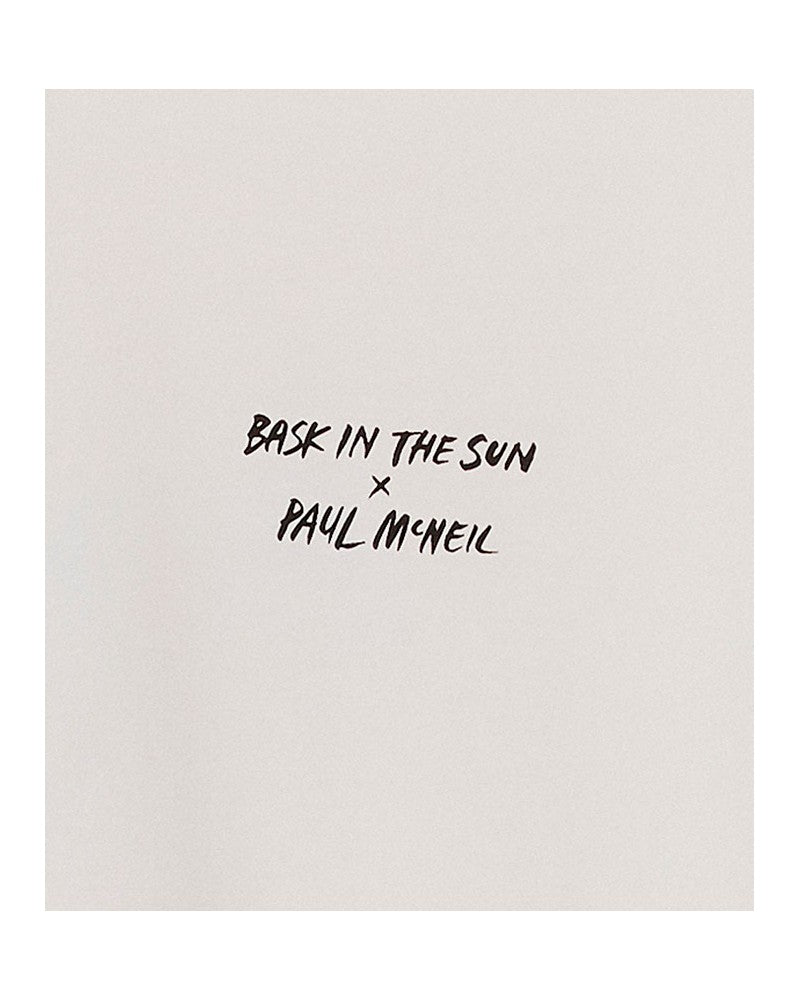 BASK IN THE SUN
x
PAUL McNEIL